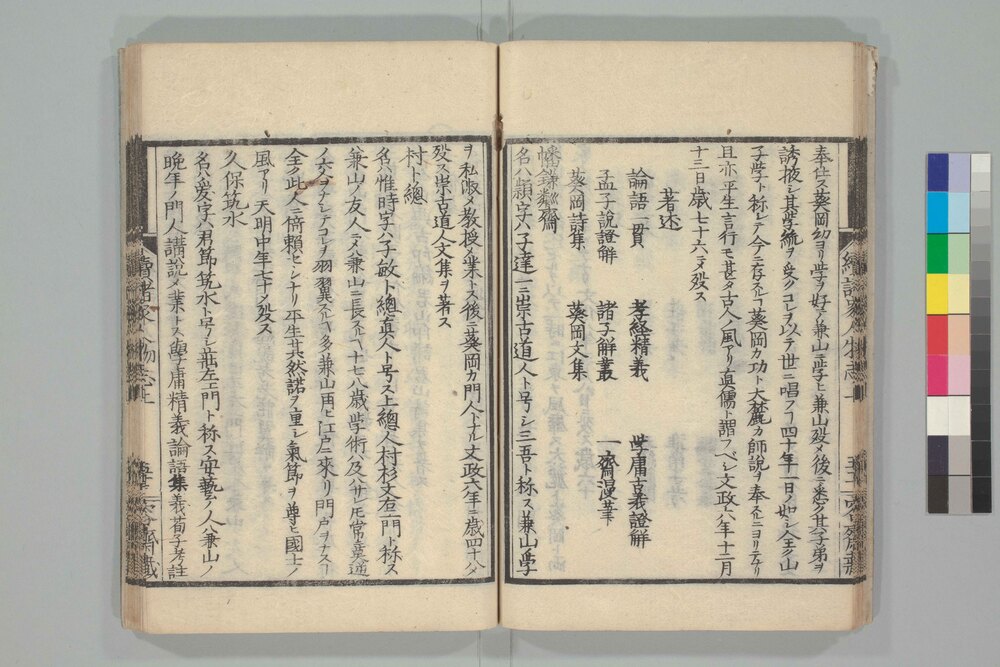 奉仕ス葵岡幼ヨリ学ヲ好ミ兼山ニ学ヒ兼山歿メ後ニ悉ク其子弟ヲ
誘掖シ其学統ヲ失ハスコレヲ以テ世ニ唱フヿ四十年一日ノ如シ人全ク山
子学ト称レテ今ニ存スルヿ葵岡カ功ト大麓カ師説ヲ奉スルニヨリテナリ
且亦平生言行モ甚タ古人ノ風アリ真儒ト謂フベシ文政六年十二月
十三日歳七十六ニメ歿ス
著述
論語一貫 孝経精義 学庸古義證解
孟子說證解 諸子解叢 一齋漫筆
葵岡詩集 葵岡文集
幡鎌 齋
名ハ頴字ハ子達一ニ崇古道人ト号シ三吾ト称ス兼山ノ学
ヲ私淑メ教授ヲ業トス後ニ葵岡カ門人トナル文政六年ニ歳四十八メ
歿ス崇古道人文集ヲ著ス
村卜總
名ハ惟時字ハ子敏ト總真人ト号ス上總人村杉文右エ門ト称ス
兼山ノ友人ニメ兼山ニ長スルヿ十七八歳学術ハ及ハサレ𪜈常莫逆
ノ交ヲナシテコレヲ羽翼スルヿ多シ兼山再ヒ江戸ニ来リ門戸ヲナスヿ
全ク此人ニ倚頼セシナリ平生其然諾ヲ重シ氣節ヲ尊ヒ國士ノ
風アリ天明中年七十メ歿ス
久保筑水
名ハ愛字ハ君節筑水ト号シ荘左エ門ト称ス安藝ノ人兼山ノ
晩年ノ門人講説メ業トス學庸精義論語集義荀子考註
續諸家人物志上